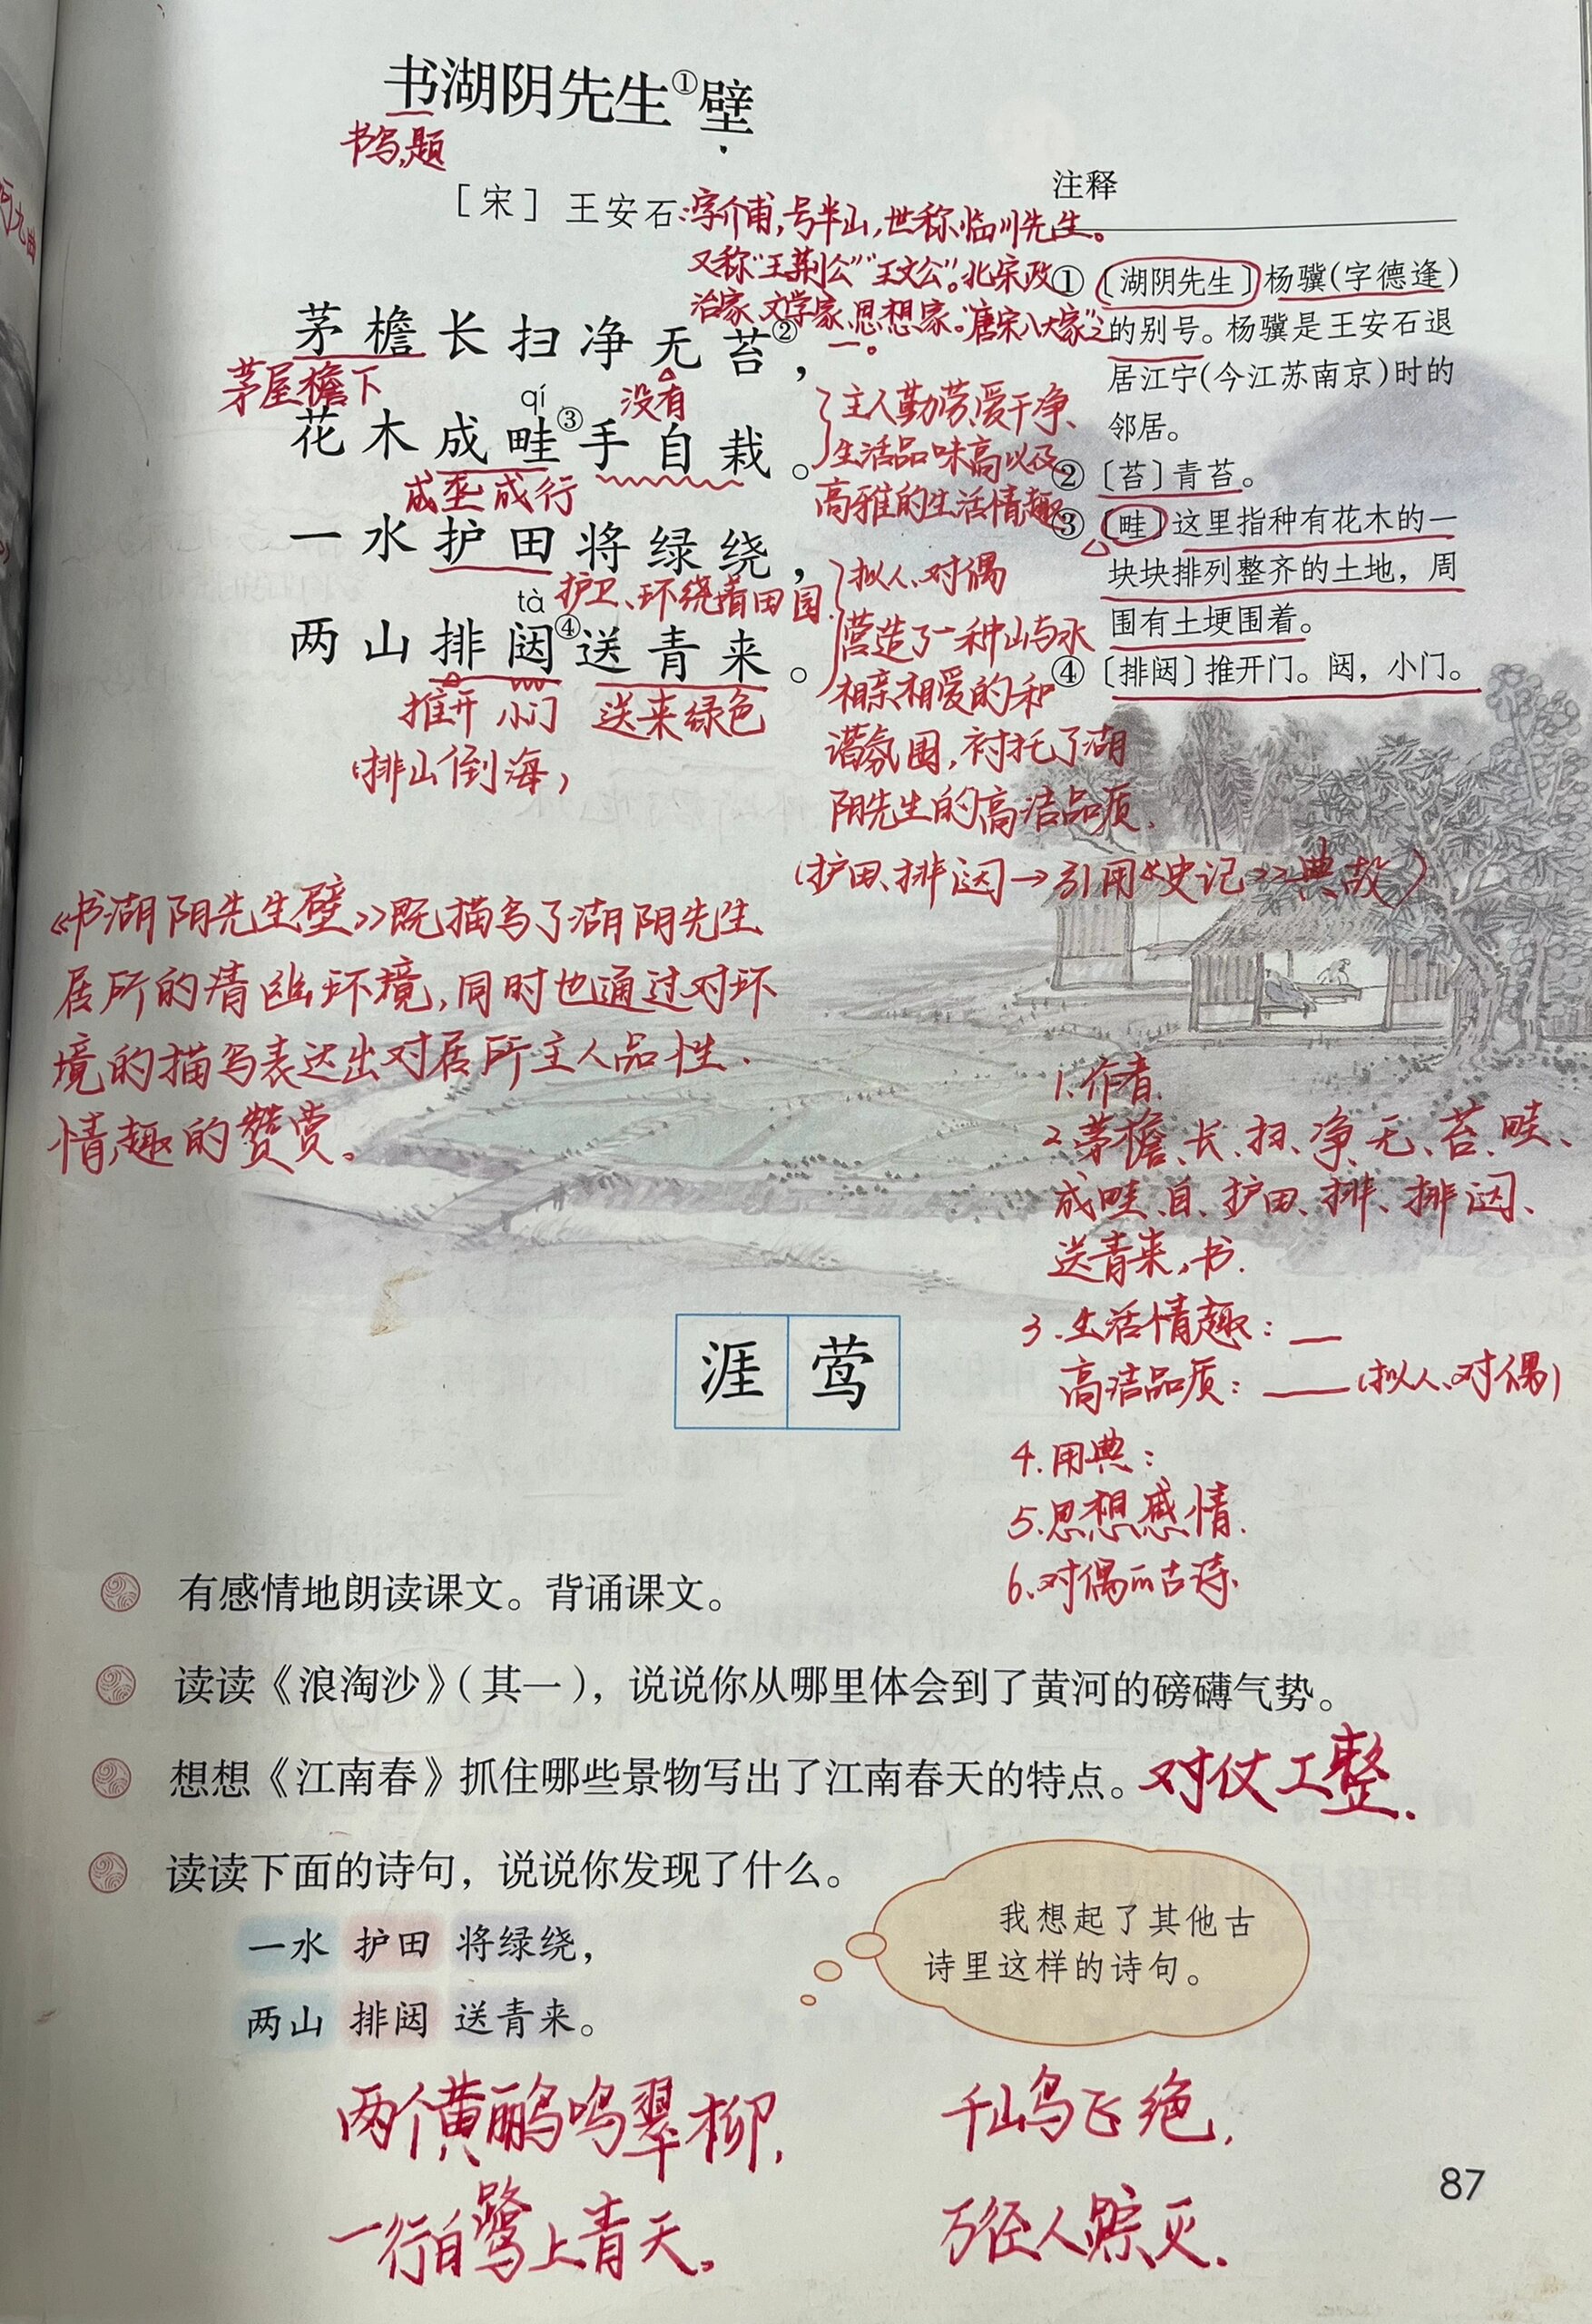 书湖阴先生①壁
书写,题
[宋] 王安石:字介甫,号半山,世称临川先生。
又称“王荆公”“王文公”。北宋政
治家、文学家、思想家。“唐宋八大家”之
一。
茅檐长扫净无苔②,
茅屋檐下
没有
qí
花木成畦③手自栽。
成垄成行
主人勤劳、爱干净、
生活品味高以及
高雅的生活情趣
一水护田将绿绕,
护卫、环绕着田园.
tà
两山排闼④送青来。
推开 小门 送来绿色
(排山倒海)
拟人、对偶
营造了一种山与水
相亲相爱的和
谐氛围,衬托了湖
阴先生的高洁品质.
(护田、排闼→引用《史记》典故)
注释
①〔湖阴先生〕杨骥(字德逢)
的别号。杨骥是王安石退
居江宁(今江苏南京)时的
邻居。
②〔苔〕青苔。
③〔畦〕这里指种有花木的一
块块排列整齐的土地,周
围有土埂围着。
④〔排闼〕推开门。闼,小门。
《书湖阴先生壁》既描写了湖阴先生
居所的清幽环境,同时也通过对环
境的描写表达出对居所主人品性.
情趣的赞赏。
1.作者.
2.茅檐、长、扫、净、无、苔、畦、
成畦、自、护田、排、排闼、
送青来,书.
3.生活情趣:__
高洁品质:___(拟人、对偶)
4.用典:
5.思想感情.
6.对偶的古诗.
涯 莺
有感情地朗读课文。背诵课文。
读读《浪淘沙》(其一),说说你从哪里体会到了黄河的磅礴气势。
想想《江南春》抓住哪些景物写出了江南春天的特点。
对仗工整.
读读下面的诗句,说说你发现了什么。
一水 护田 将绿绕,
两山 排闼 送青来。
我想起了其他古
诗里这样的诗句。
两个黄鹂鸣翠柳,
一行白鹭上青天。
千山鸟飞绝,
万径人踪灭.
87